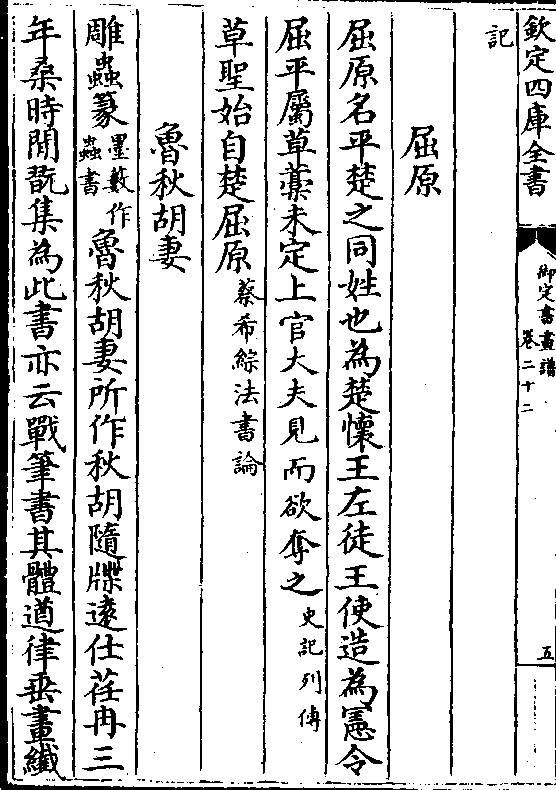 欽定四庫全書
御定書畫譜
卷二十二
五
記
屈原
屈原名平楚之同姓也為楚懷王左徒王使造為憲令
屈平屬草藁未定上官大夫見而欲奪之史記列傳
草聖始自楚屈原蔡希綜法書論
魯秋胡妻
雕蟲篆墨藪作蟲書魯秋胡妻所作秋胡隨牒遠仕荏冉三
年桑時閒翫集為此書亦云戰筆書其體遒律垂畫纎